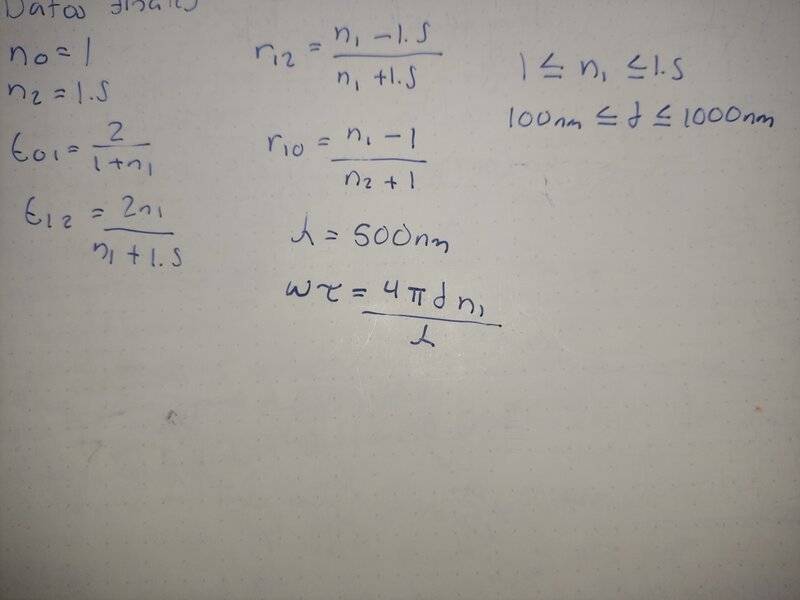 Datos
n0 = 1
n2 = 1.5
t01 = 2/(1+n1)
t12 = 2n1/(n1 + 1.5)
r12 = (n1 - 1.5)/(n1 + 1.5)
r10 = (n1 - 1)/(n2 + 1)
λ = 500nm
wτ = 4πd n1/λ
1 ≤ n1 ≤ 1.5
100nm ≤ d ≤ 1000nm